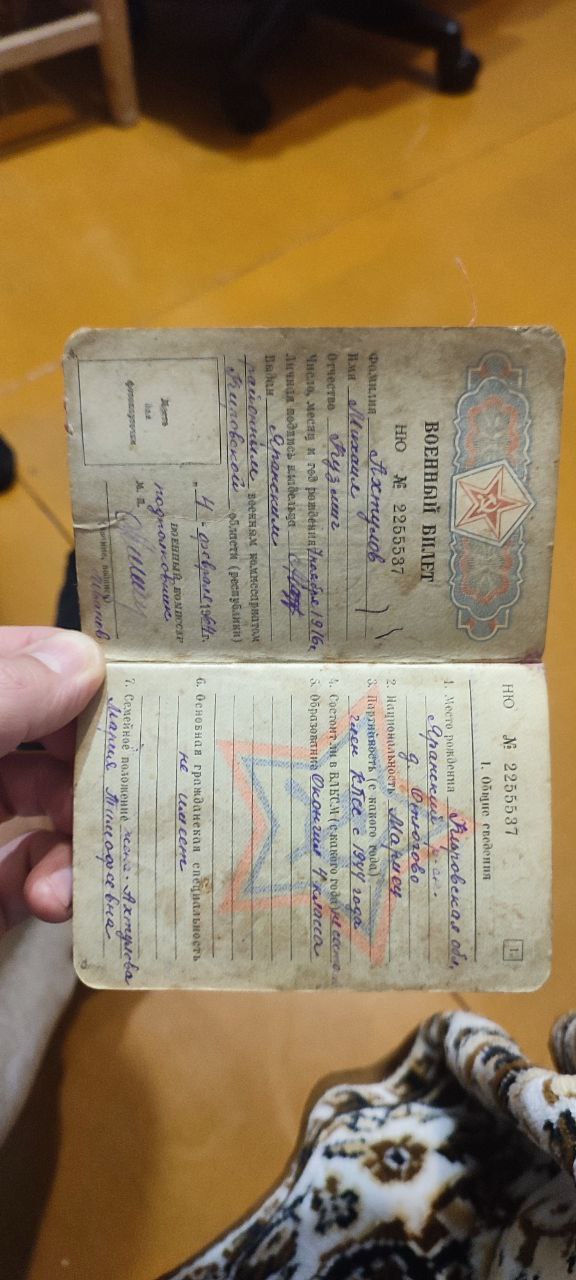 ВОЕННЫЙ БИЛЕТ
НЮ № 2255537
Фамилия Ахтулов
Имя Михаил
Отчество Кузьмич
Число, месяц и год рождения 7 ноября 1916 г.
Личная подпись владельца
Выдан Яранским
районным военным комиссариатом
Кировской области (республики)
„ 4 " февраля 1964 г.
ВОЕННЫЙ КОМИССАР
подполковник
М. П.
Иванов
Место
для
фотокарточки
НЮ № 2255537
1
I. Общие сведения
1. Место рождения Кировская обл.
Яранский
д. Отюгово
2. Национальность Мариец
3. Партийность (с какого года)
член КПСС с 1944 года
4. Состоит ли в ВЛКСМ (с какого года)
5. Образование Окончил 4 класса
6. Основная гражданская специальность
не имеет
7. Семейное положение жена - Ахтулова
Мария Тимофеевна